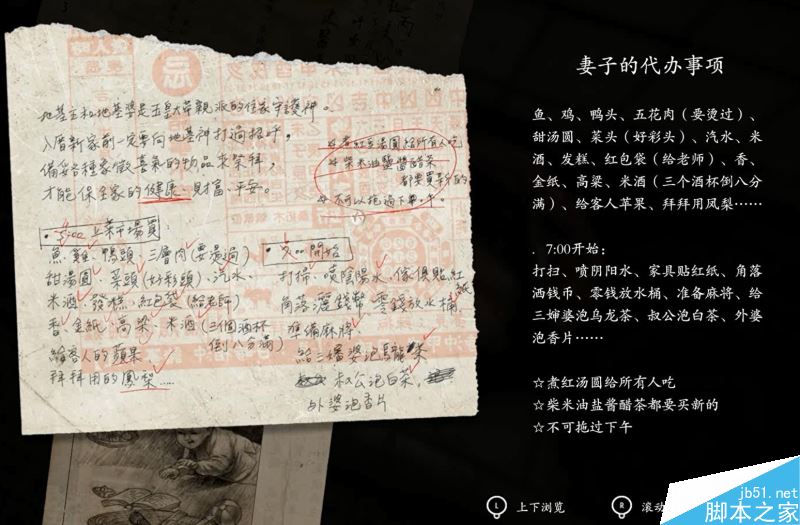 地基主和地基婆是玉皇大帝親派的住家守護神。
入厝新家前一定要向地基神打過招呼,
備妥各種象徵喜氣的物品來祭拜,
才能保全家的健康、財富、平安。
☆煮紅豆湯圓給所有人吃
☆柴米油鹽醬醋茶
都要買新的
☆不可以拖過下午。
上菜市場買:
魚、雞、鴨頭、三層肉(要燙過)
甜湯圓、菜頭(好彩頭)、汽水、
米酒、發糕、紅包袋(給老師)
香、金紙、高粱、米酒(三個酒杯
倒八分滿)
給客人的蘋果
拜拜用的鳳梨……
7:00開始
打掃、噴陰陽水、傢俱貼紅紙
角落灑錢幣、零錢放水桶、
準備麻將、
給三嬸婆泡烏龍茶
叔公泡白茶,
外婆泡香片
妻子的代办事项
鱼、鸡、鸭头、五花肉(要烫过)、
甜汤圆、菜头(好彩头)、汽水、米
酒、发糕、红包袋(给老师)、香、
金纸、高梁、米酒(三个酒杯倒八分
满)、给客人苹果、拜拜用凤梨……
. 7:00开始:
打扫、喷阴阳水、家具贴红纸、角落
洒钱币、零钱放水桶、准备麻将、给
三婶婆泡乌龙茶、叔公泡白茶、外婆
泡香片……
☆煮红汤圆给所有人吃
☆柴米油盐酱醋茶都要买新的
☆不可拖过下午
L 上下浏览
R 滚动
jb51.net
脚本之家